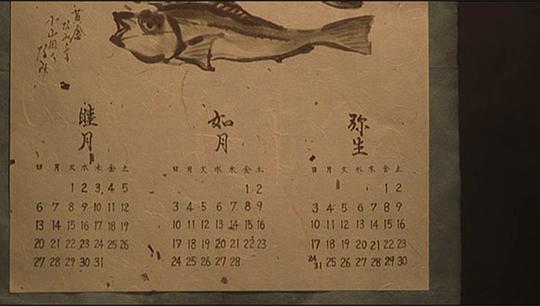 睦月
日 月 火 水 木 金 土
1 2 3 4 5
6 7 8 9 10 11 12
13 14 15 16 17 18 19
20 21 22 23 24 25 26
27 28 29 30 31
如月
日 月 火 水 木 金 土
1 2
3 4 5 6 7 8 9
10 11 12 13 14 15 16
17 18 19 20 21 22 23
24 25 26 27 28
弥生
日 月 火 水 木 金 土
1 2
3 4 5 6 7 8 9
10 11 12 13 14 15 16
17 18 19 20 21 22 23
24/31 25 26 27 28 29 30